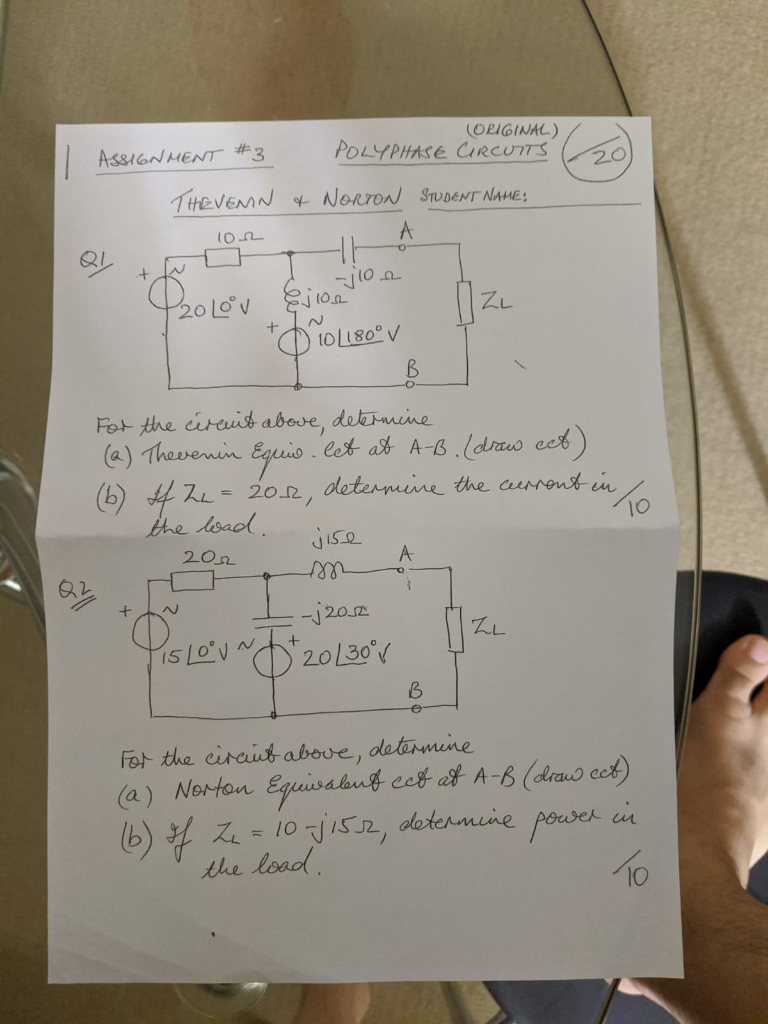 (ORIGINAL)
ASSIGNMENT #3 POLYPHASE CIRCUITS /20
THEVENIN & NORTON STUDENT NAME:
Q1
10Ω
A
+ ~
-j10Ω
20∠0° V
j10Ω
ZL
+ ~
10∠180° V
B
For the circuit above, determine
(a) Thevenin Equiv. cct at A-B. (draw cct)
(b) If ZL = 20Ω, determine the current in /10
the load.
Q2
20Ω
j15Ω
A
+ ~
-j20Ω
ZL
15∠0° V
~ +
20∠30° V
B
For the circuit above, determine
(a) Norton Equivalent cct at A-B (draw cct)
(b) If ZL = 10-j15Ω, determine power in
the load.
/10